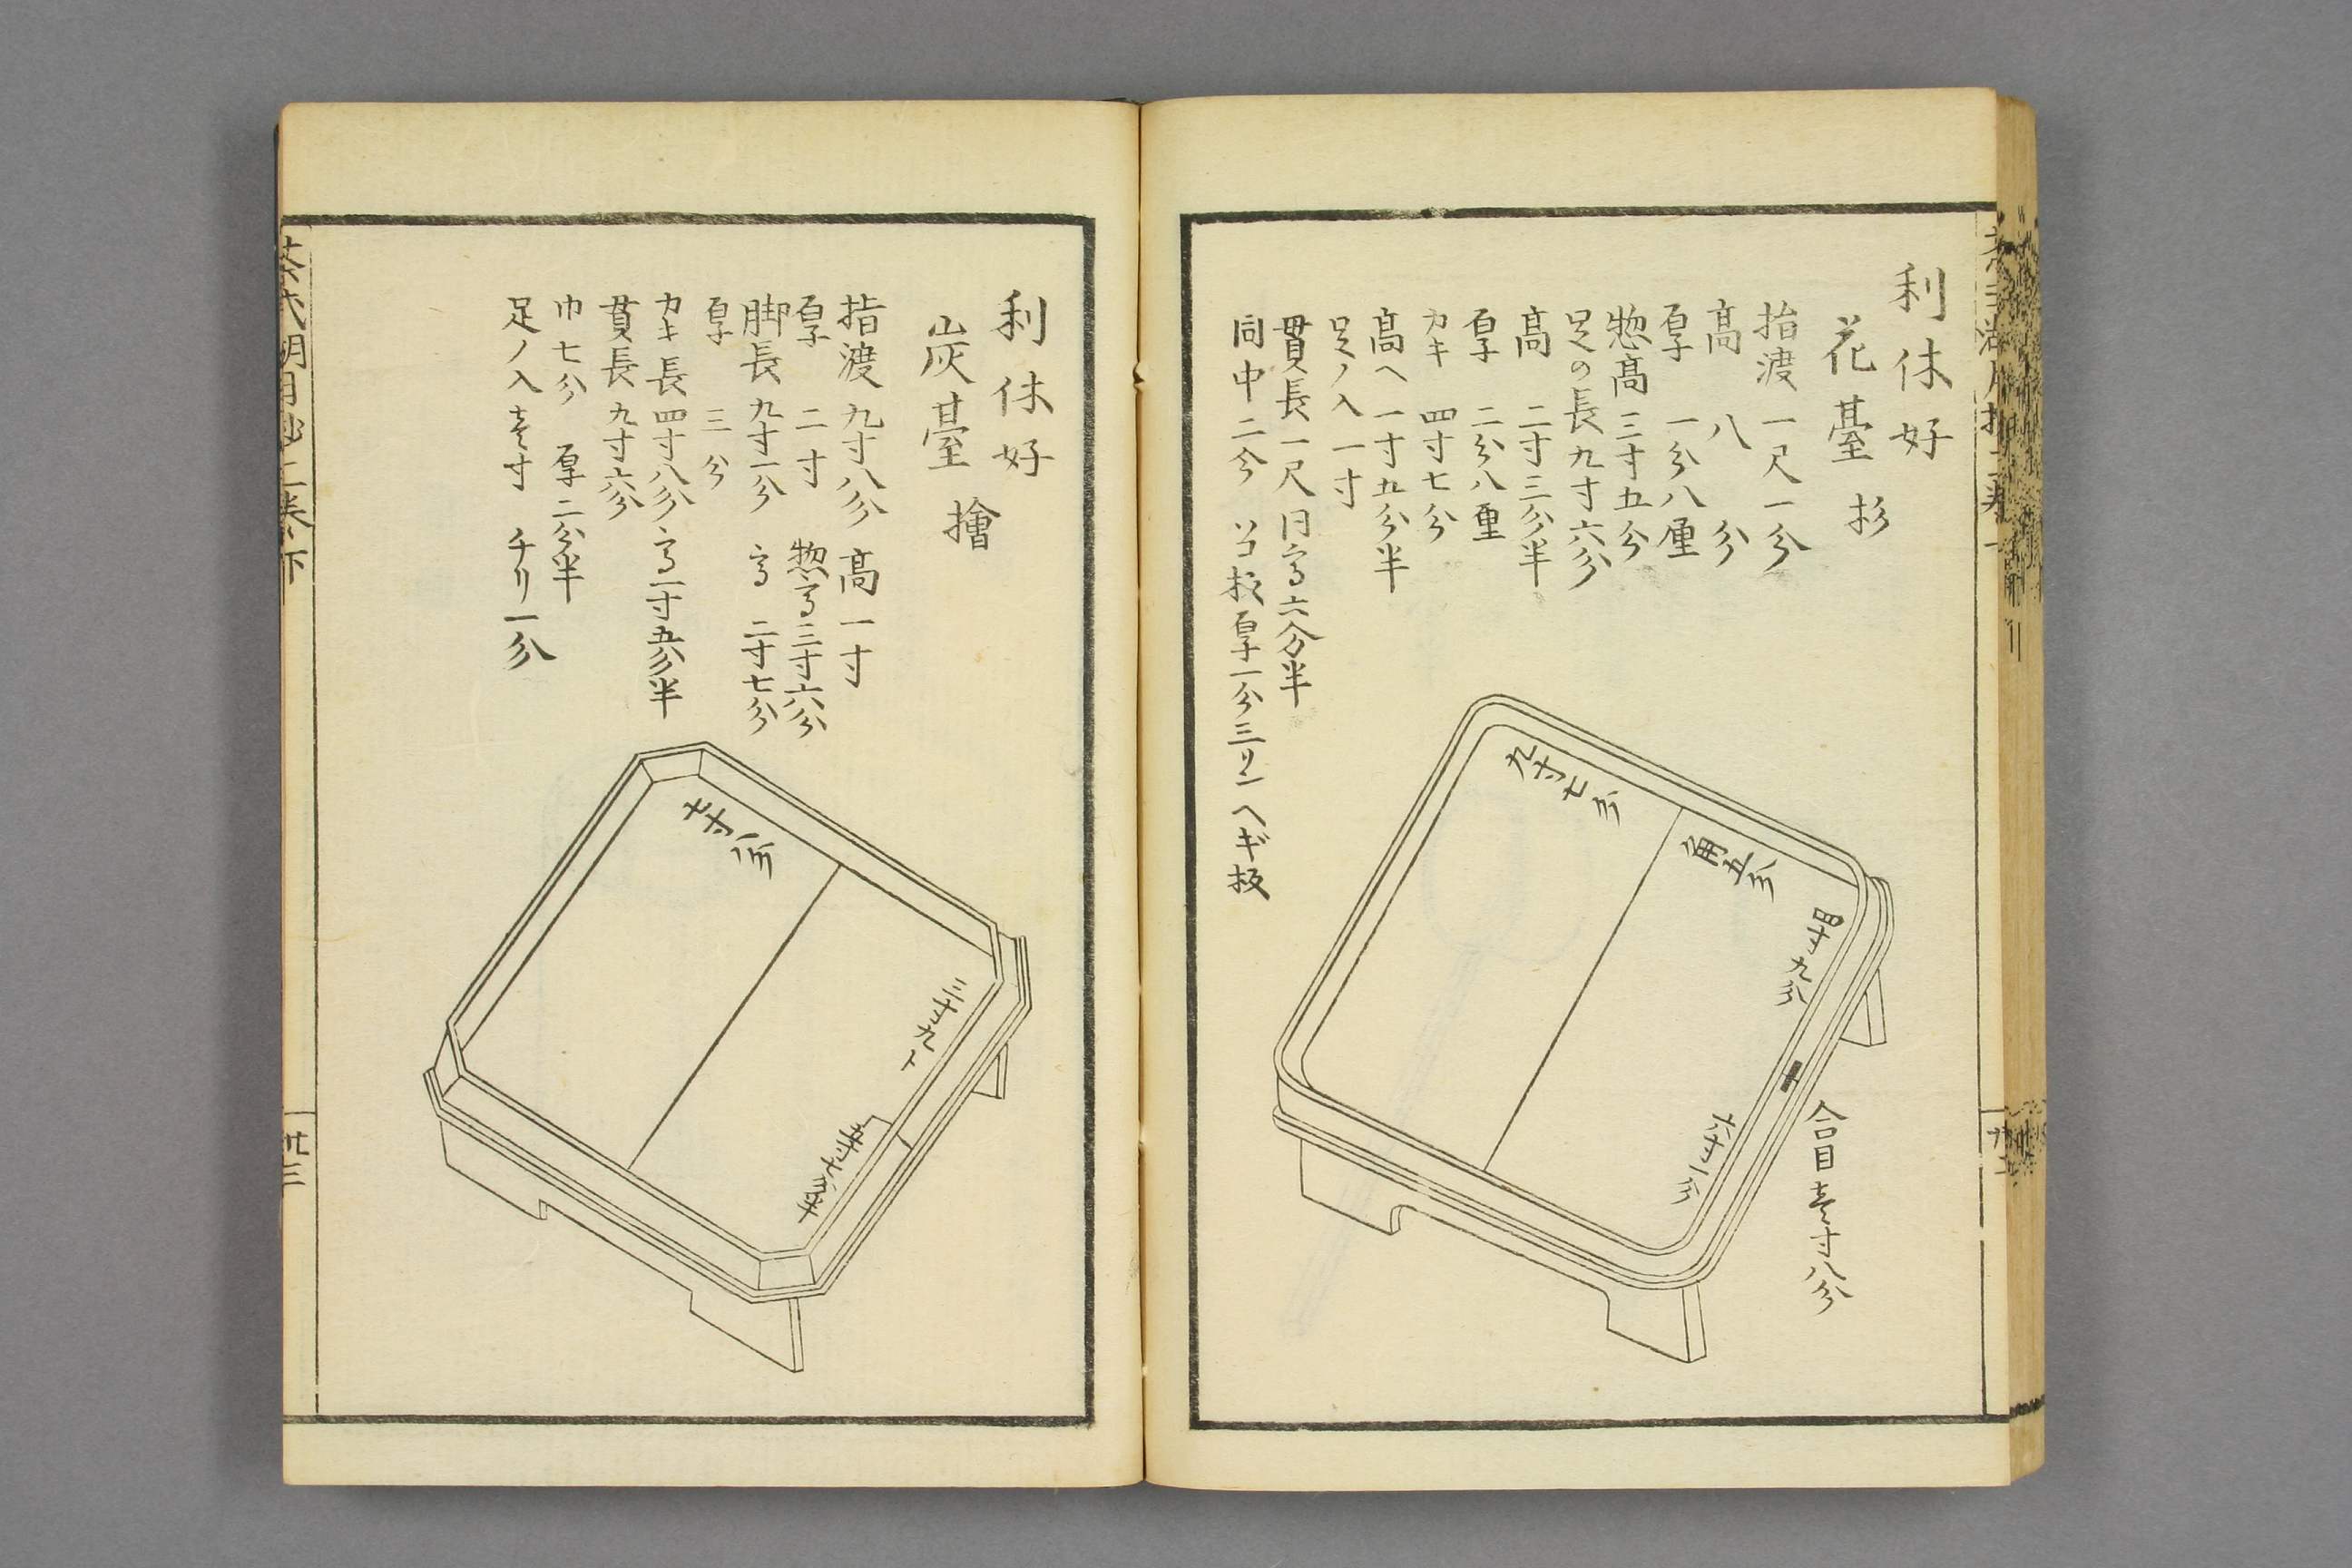 利休好
花臺 杉
指渡 一尺一分
高 八分
厚 一分八厘
惣高 三寸五分
足の長 九寸六分
高 二寸三分半
厚 二分八厘
カキ 四寸七分
高ヘ 一寸五分半
足ノ入 一寸
貫長一尺 同高六分半
同巾二分 ソコ板厚一分三リン ヘギ板
九寸七分
角五分
四寸九分
六寸一分
合目壱寸八分
利休好
炭臺 檜
指渡 九寸八分 高一寸
厚 二寸 惣高三寸六分
脚長 九寸一分 高 二寸七分
厚 三分
カキ長 四寸八分 高一寸五分半
貫長 九寸六分
巾七分 厚二分半
足ノ入 壱寸 チリ一分
三寸九
茶式湖月抄二巻下
廿三